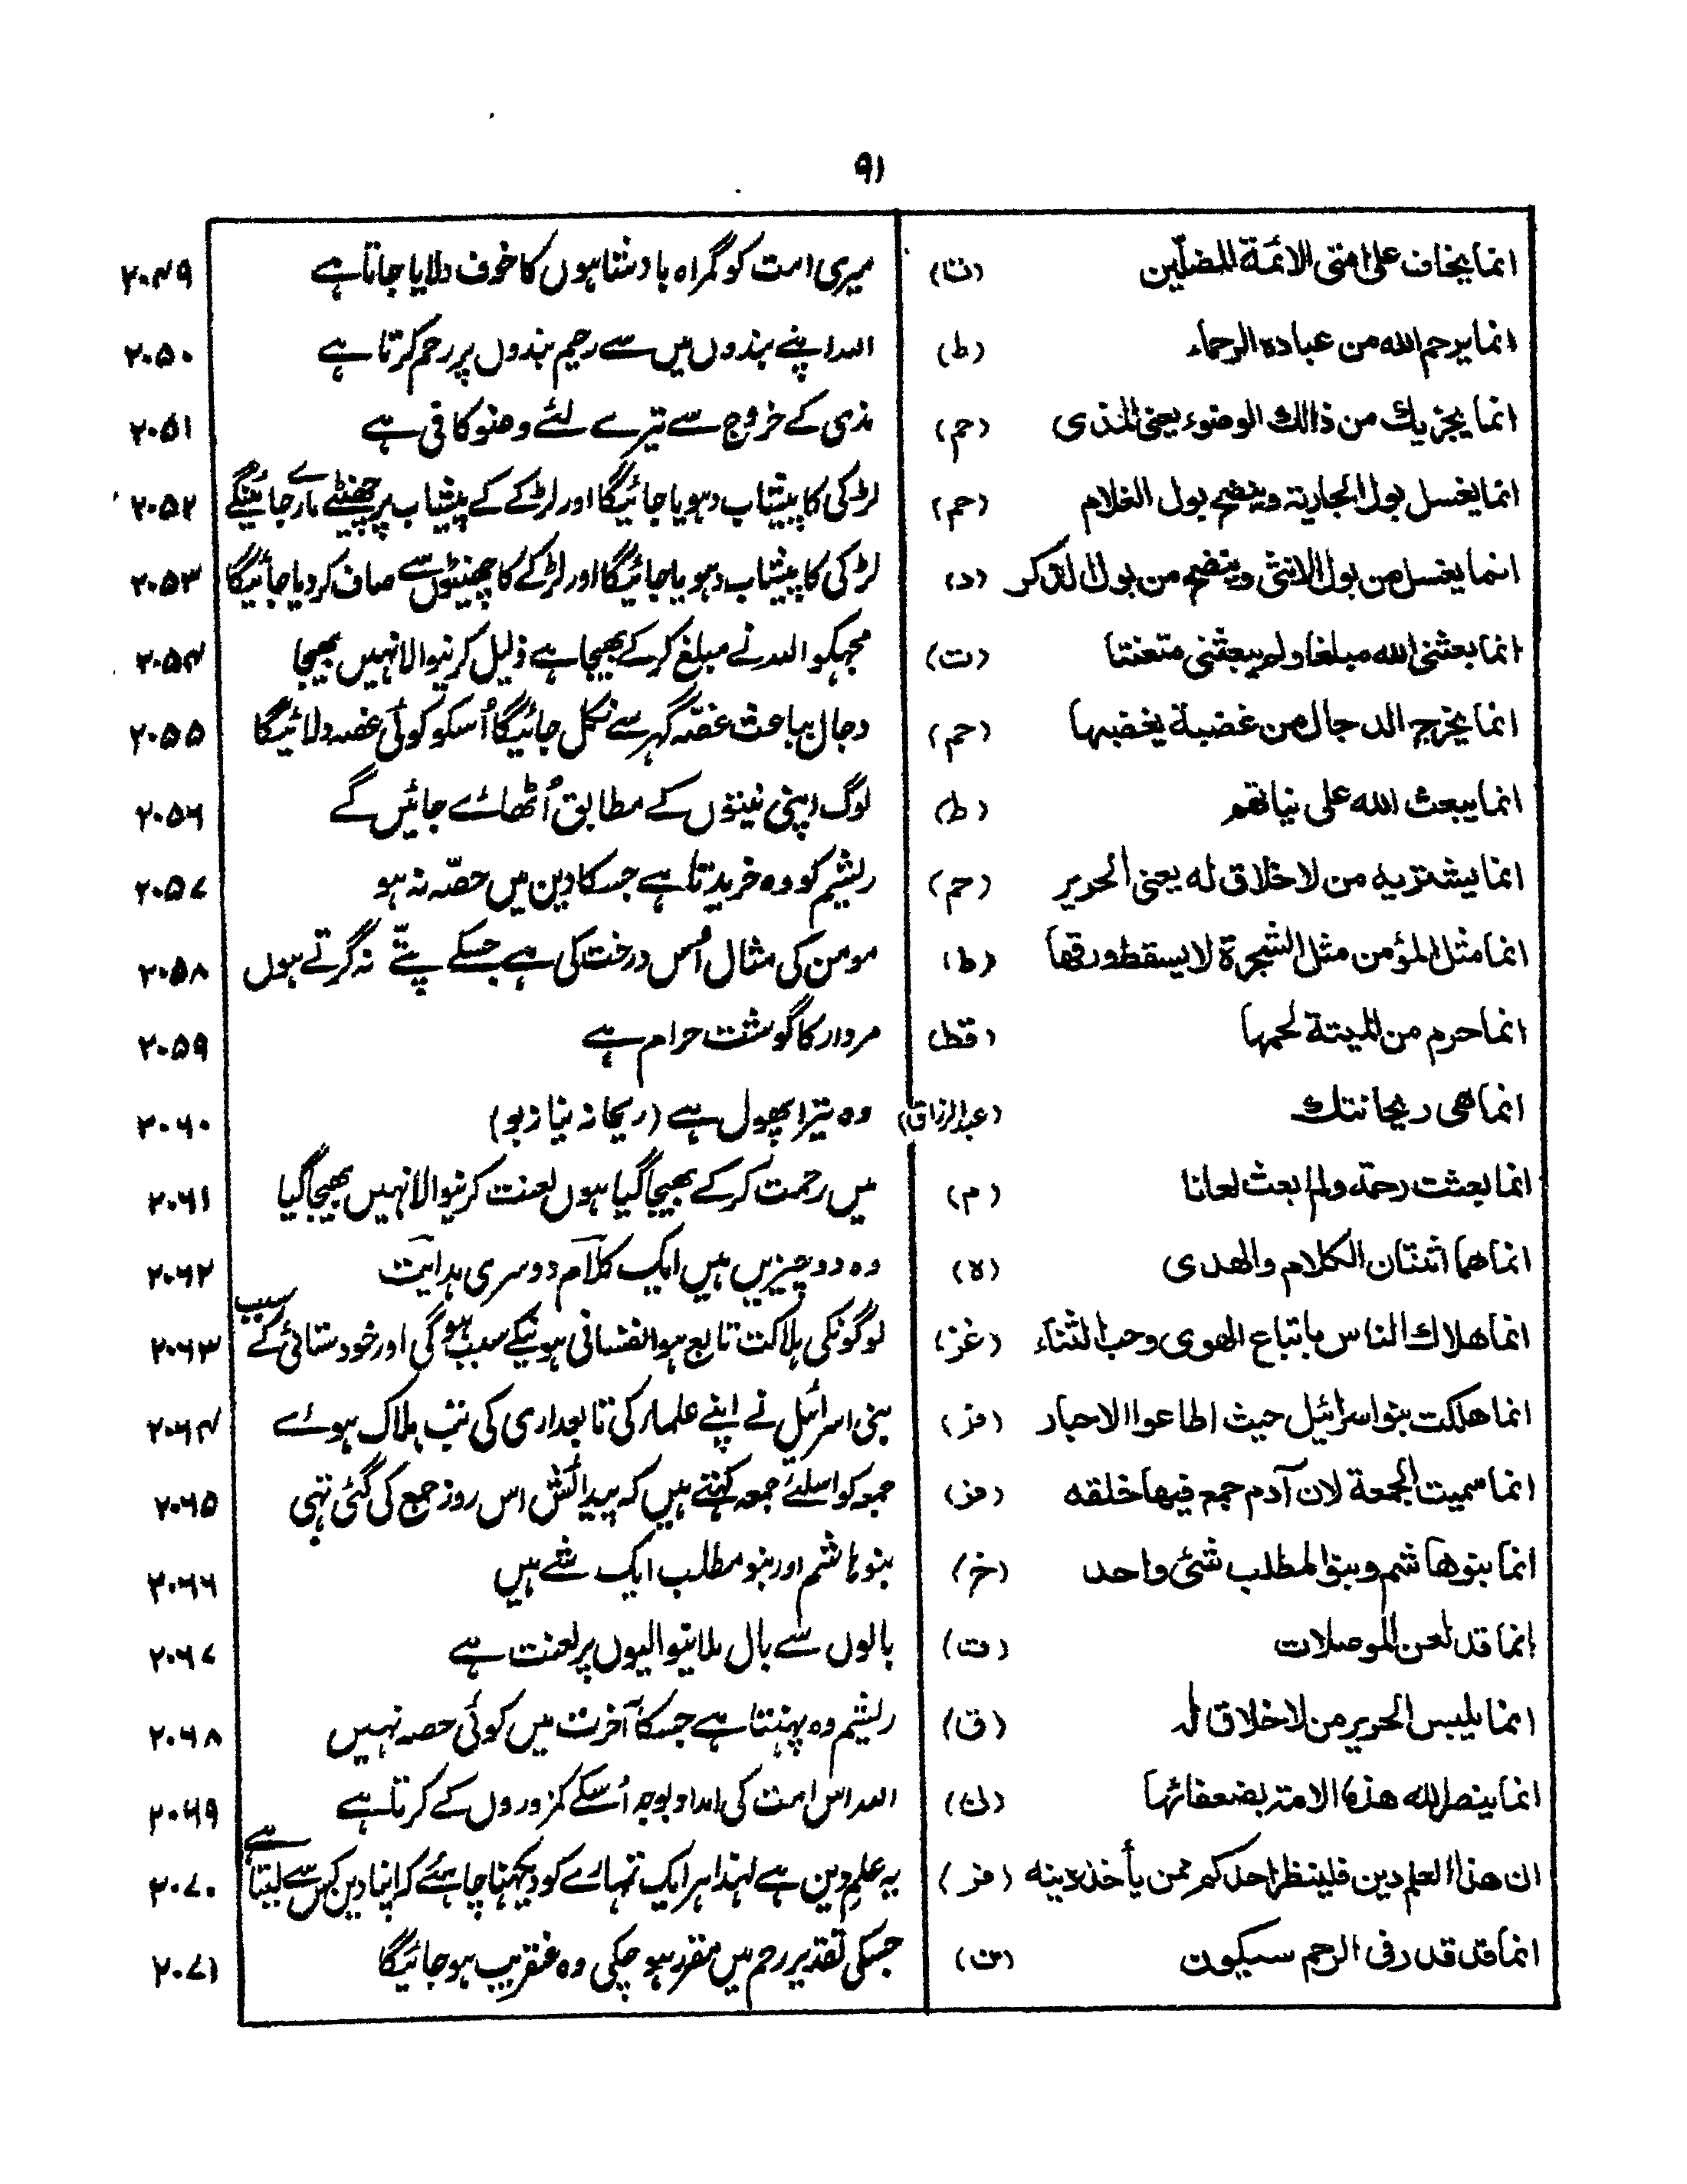 ۹۱
انما یخاف علی امتی الائمة المضلّین (ت) میری امت کو گمراہ بادشاہوں کا خوف دلایا جاتا ہے ۲۰۴۹
انما یرحم الله من عباده الرحماء (ط) اللہ اپنے بندوں میں سے رحیم بندوں پر رحم کرتا ہے ۲۰۵۰
انما یجزیك من ذالك الوضوء یعنی المذی (حم) مذی کے خروج سے تیرے لئے وضو کافی ہے ۲۰۵۱
انما یغسل بول الجاریة وینضح بول الغلام (حم) لڑکی کا پیشاب دہویا جائیگا اور لڑکے کے پیشاب پر چھنٹے مارے جائینگے ۲۰۵۲
انما یغسل من بول الانثی وینضح من بول الذکر (د) لڑکی کا پیشاب دہویا جائیگا اور لڑکے کا چھینٹوں سے صاف کردیا جائیگا ۲۰۵۳
انما بعثنی الله مبلغا ولم یبعثنی متعنتا (ت) مجہکو اللہ نے مبلغ کرکے بھیجا ہے ذلیل کرنیوالا نہیں بھیجا ۲۰۵۴
انما یخرج الدجال من غضبة یغضبها (حم) دجال بباعث غصّہ گہر سے نکل جائیگا اُسکو کوئی غصہ دلائیگا ۲۰۵۵
انما یبعث الله علی نیاتهم (ط) لوگ اپنی نیتوں کے مطابق اُٹھائے جائیں گے ۲۰۵۶
انما یشتریه من لا خلاق له یعنی الحریر (حم) ریشم کو وہ خریدتا ہے جسکا دین میں حصّہ نہ ہو ۲۰۵۷
انما مثل المؤمن مثل الشجرة لا یسقط ورقها (ط) مومن کی مثال اُس درخت کی ہے جسکے پتّے نہ گرتے ہوں ۲۰۵۸
انما حرم من المیتة لحمها (قط) مردار کا گوشت حرام ہے ۲۰۵۹
انما هی ریحانتك (عبدالرزاق) وہ تیرا پھول ہے (ریحانہ نیازبو) ۲۰۶۰
انما بعثت رحمة ولم ابعث لعانا (م) میں رحمت کرکے بھیجا گیا ہوں لعنت کرنیوالا نہیں بھیجا گیا ۲۰۶۱
انما هما اثنتان الکلام والهدی (ه) وہ دو چیزیں ہیں ایک کلام دوسری ہدایت ۲۰۶۲
انما هلاك الناس باتباع الهوی وحب الثناء (غز) لوگونکی ہلاکت تابع ہوا نفسانی ہونیکے سبب ہوگی اور خود ستائی کے سبب ۲۰۶۳
انما هلکت بنو اسرائیل حیث اطاعوا الاحبار (فر) بنی اسرائیل نے اپنے علماء کی تابعداری کی تب ہلاک ہوئے ۲۰۶۴
انما سمیت الجمعة لان آدم جمع فیها خلقه (فر) جمعہ کو اسلئے جمعہ کہتے ہیں کہ پیدائش اس روز جمع کی گئی تہی ۲۰۶۵
انما بنو هاشم وبنو المطلب شئ واحد (خ) بنو ہاشم اور بنو مطلب ایک شے ہیں ۲۰۶۶
انما قد لعن الموصلات (ت) بالوں سے بال ملانیوالیوں پر لعنت ہے ۲۰۶۷
انما یلبس الحریر من لا خلاق له (ق) ریشم وہ پہنتا ہے جسکا آخرت میں کوئی حصہ نہیں ۲۰۶۸
انما ینصر الله هذه الامة بضعفائها (ن) اللہ اس امت کی امداد بوجہ اُسکے کمزوروں کے کرتا ہے ۲۰۶۹
ان هذا العلم دین فلینظر احدکم ممن یأخذ دینه (فر) یہ علم دین ہے لہٰذا ہر ایک تمہارے کو دیکھنا چاہئے کہ اپنا دین کس سے لیتا ہے ۲۰۷۰
انما قد قدر فی الرحم سیکون (ن) جسکی تقدیر رحم میں مقرر ہو چکی وہ عنقریب ہو جائیگا ۲۰۷۱